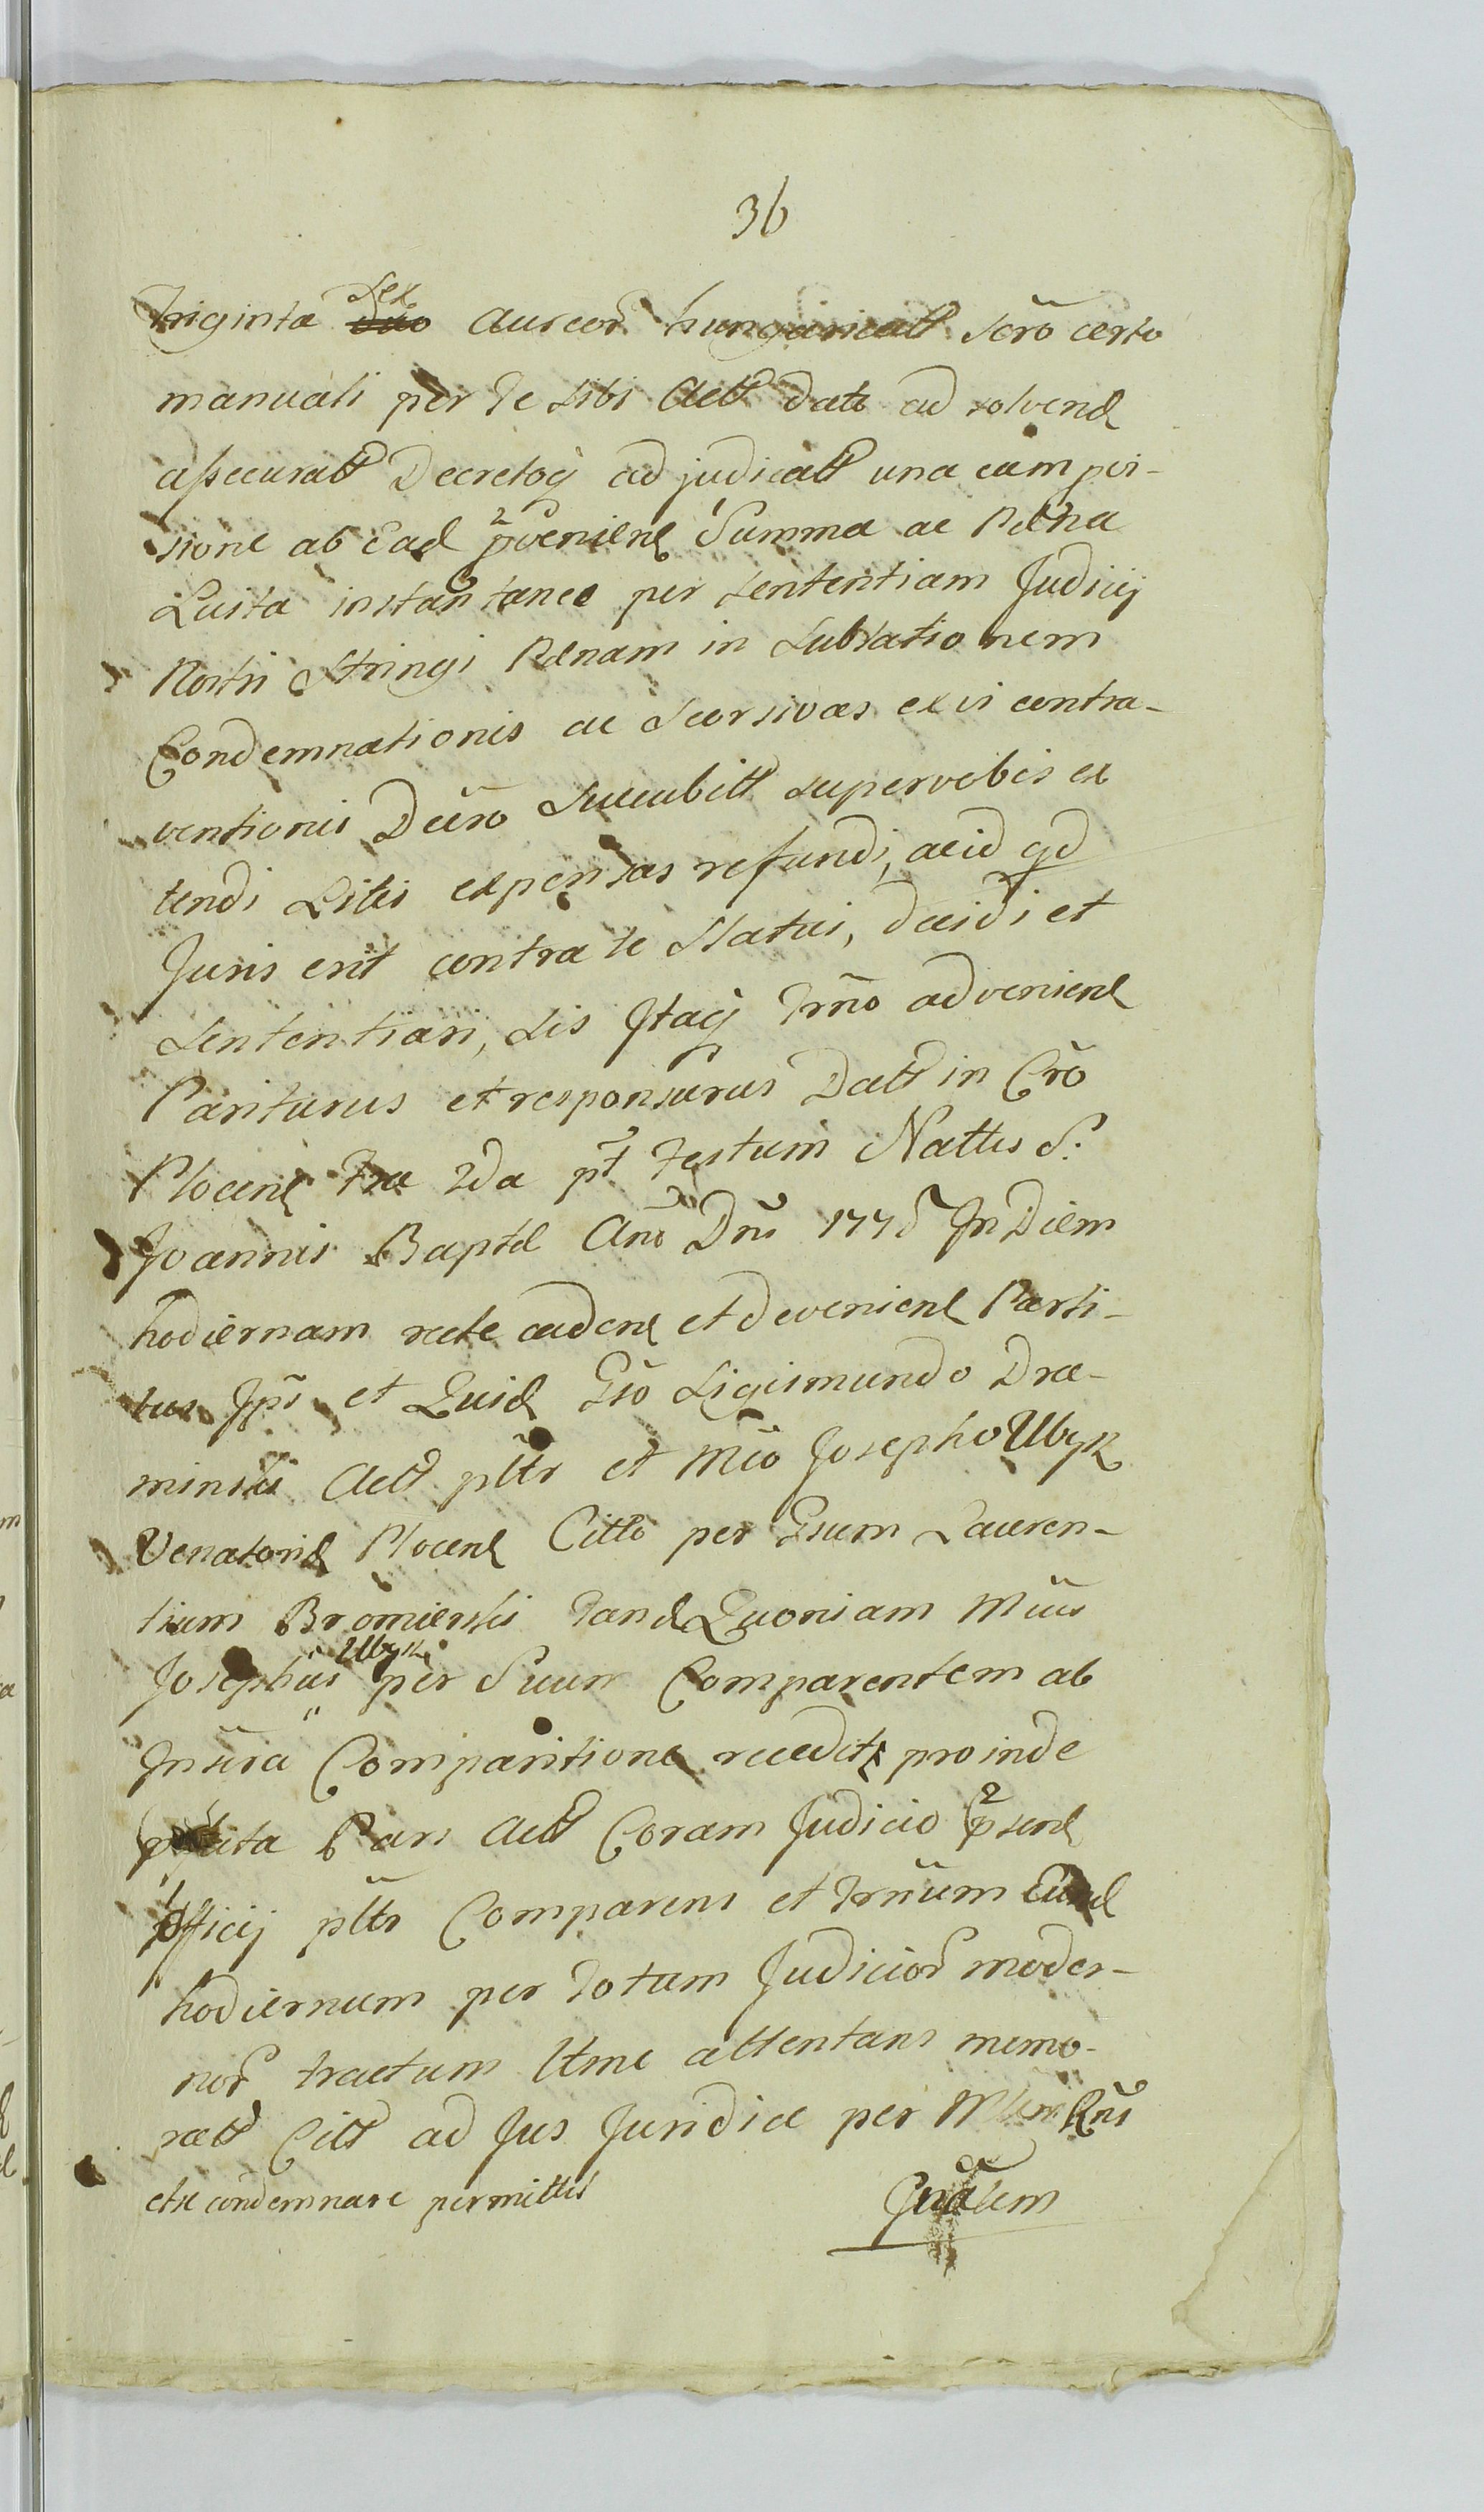 36
sex
Triginta duo Aureor hungaricall scro certo
manuali per Te sibi Actt dato ad solvend
assecuratt Decretoq adjudicatt una cum poi-
sione ab Ead pveniene Summa ac Pena
Luita instantanee per sententiam Judicij
Nostri Stringi Penam in sublationem
Condemnationis ac Seorsivas ex vi contra-
ventionis Dcro succubitt super vobis ex
tendi Litis expensas refundi, ac id qd
Juris erit contra te statui, decidi et
sententiari, sis Itaq Trno adveniene
Pariturus et responsurus Datt in Cro
Plocene Fra 2da pt Festum Nattis S.
Joannis Bapte Ano Dni 1778 In Diem
hodiernam recte cadene et deveniene Parti-
bus Ipsi et Quid Gso Sigismundo Dra-
minski Actt pltr et Mco Josepho Ubysz
Venatorid Plocene Citto per Gsum Lauren-
tium Bromierski Tand Quoniam Mcus
Ubysz
Josephus per Suum Comparentem ab
Insua Comparitione recedit proinde
Pars Actt Coram Judicio psene
Officij pltr Comparens et Trnum Eund
hodiernum per Totum Judicior moder-
nor tractum ltme attentans memo-
ratt Citt ad Jus Juridice per
etse condemnare permittit